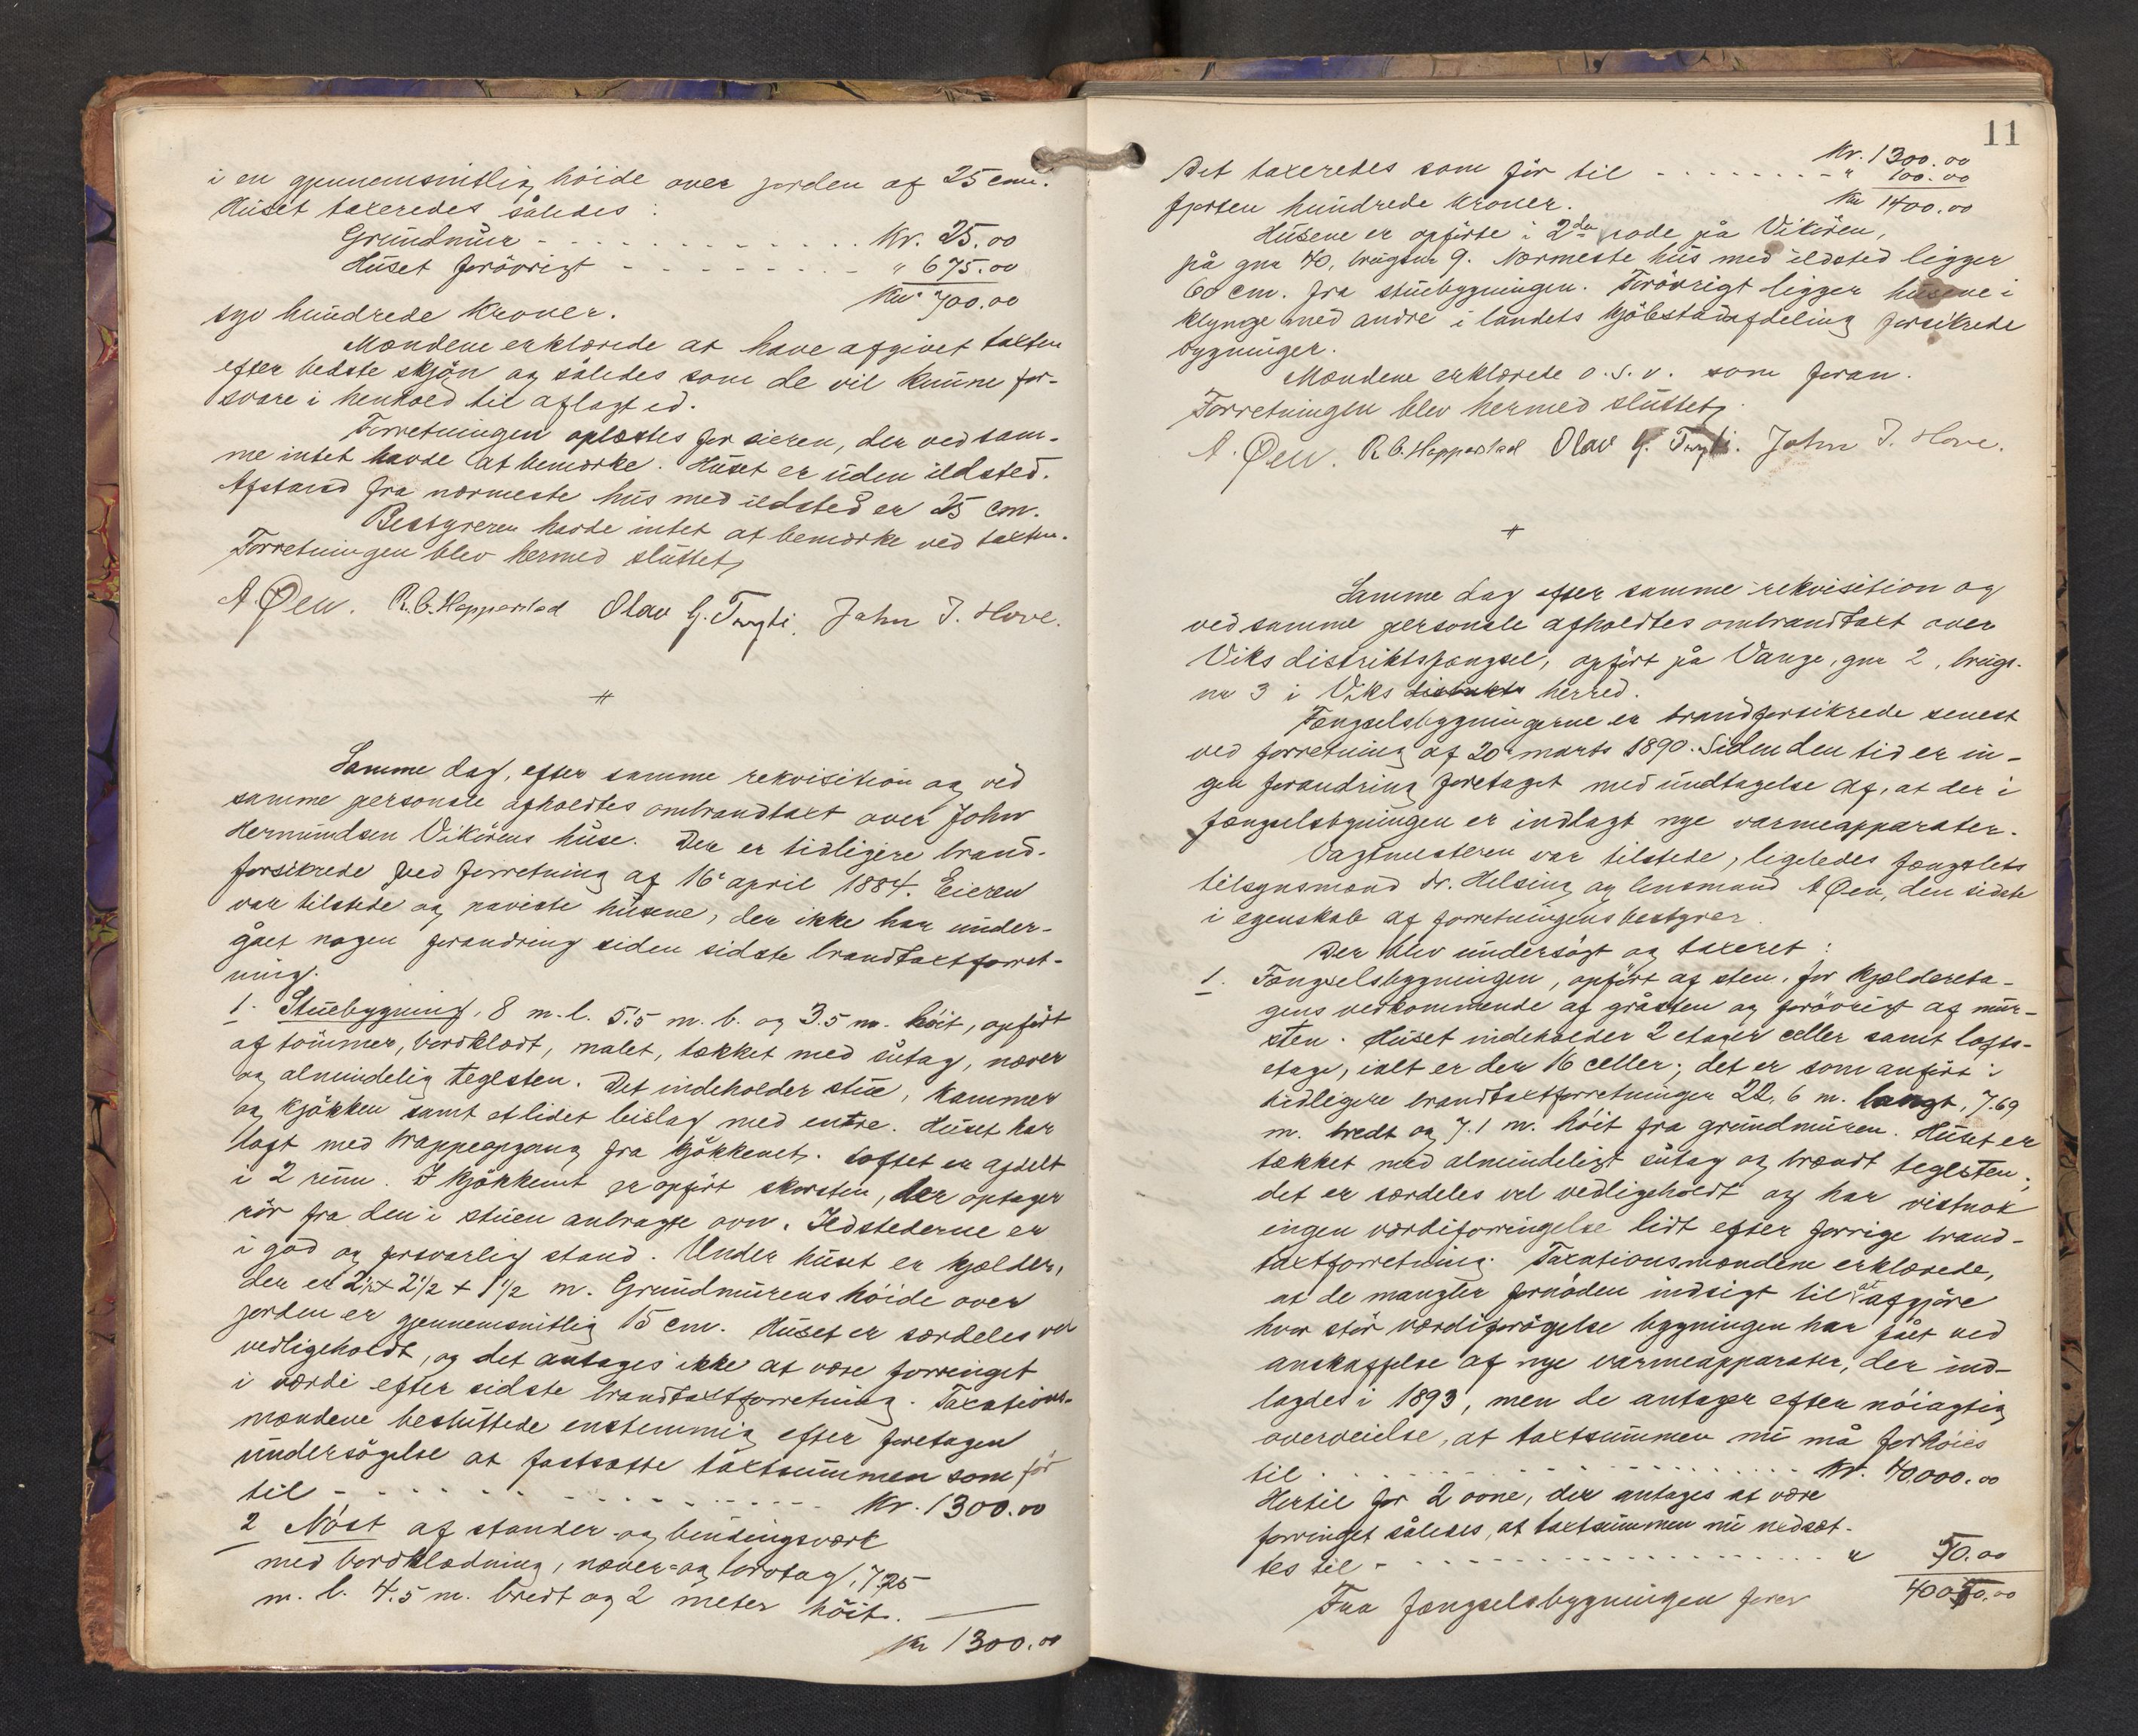 i en gjennemsnitlig höide over jorden af 25 cm.
Huset taxeredes således:
Grundmur - - - - - - - - - - - - Kr. 25.00
Huset forövrigt - - - - - - - - - " 675.00
Kr. 700.00
syv hundrede kroner.
Mændene erklærede at have afgivet taxten
efter bedste skjön og således som de vil kunne for-
svare i henhold til aflagt ed.
Forretningen oplæstes for eieren, der ved sam-
me intet havde at bemærke. Huset er uden ildsted.
Afstand fra nærmeste hus med ildsted er 25 cm.
Bestyreren havde intet at bemærke ved taxten.
Forretningen blev hermed sluttet,
A. Øen. R.O. Hopperstad Olav G. Tryti. John J. Hove.
Samme dag, efter samme rekvisition og ved
samme personale afholdtes ombrandtaxt over John
Hermundsen Vikörens huse. Der er tidligere brand-
forsikrede ved forretning af 16 april 1884. Eieren
var tilstede og paviste husene, der ikke har under-
gået nogen forandring siden sidste brandtaxtforret-
ning.
1. Stuebygning, 8 m. l. 5.5 m. b. og 3.5 m. höit, opfört
af tömmer, bordklædt, malet, tækket med sutag, næver
og almindelig teglsten. Det indeholder stue, kammer
og kjökken samt et lidet bislag med entre. Huset har
loft med trappeopgang fra kjökkenet. Loftet er afdelt
i 2 rum. I kjökkenet er opfört skorsten, der optager
rör fra den i stuen anbragte ovn. Ildstederne er
i god og forsvarlig stand. Under huset er kjelder,
der er 2½ + 2½ + 1½ m. Grundmurens höide over
jorden er gjennemsnitlig 15 cm. Huset er særdeles vel
vedligeholdt, og det antages ikke at være forringet
i værdi efter sidste brandtaxtforretning. Taxations-
mændene besluttede enstemmig efter foretagen
undersögelse at fastsætte taxtsummen som för
til - - - - - - - - - - - - - - - - Kr. 1300.00
2 Nöst af stander- og bindingsværk
med bordklædning, næver- og torvtag, 7.25
m. l. 4.5 m. bredt og 2 meter höit.
Kr 1300.00
11
Det taxeredes som för til - - - - - - - - " 100.00
Kr. 1300.00
fjorten hundrede kroner. Kr 1400.00
Husene er opförte i 2den rode på Vikören,
på gnr 40, brugsnr 9. Nærmeste hus med ildsted ligger
60 cm. fra stuebygningen. Forövrigt ligger husene i
klynge med andre i landets kjöbstadsafdeling forsikrede
bygninger.
Mændene erklærede o. s. v. som foran.
Forretningen blev hermed sluttet,
A. Øen. R.O. Hopperstad Olav G. Tryti. John J. Hove.
Samme dag efter samme rekvisition og
ved samme personale afholdtes ombrandtaxt over
Viks distriktsfængsel, opfört på Vange, gnr 2, brugs-
nr 3 i Viks distrikts herred.
Fængselsbygningerne er brandforsikrede senest
ved forretning af 20 marts 1890. Siden den tid er in-
gen forandring foretaget med undtagelse af, at der i
fængselsbygningen er indlagt nye varmeapparater.
Vagtmesteren var tilstede, ligeledes fængslets
tilsynsmand dr. Helsing og lensmand A Øen, den sidste
i egenskab af forretningens bestyrer.
Der blev undersögt og taxeret:
1. Fængselsbygningen, opfört af sten, for kjeldereta-
gens vedkommende af gråsten og forövrigt af mur-
sten. Huset indeholder 2 etager celler samt lofts-
etage, ialt er der 16 celler; det er som anfört i
tidligere brandtaxtforretninger 22,6 m. langt, 7.69
m. bredt og 7.1 m. höit fra grundmuren. Huset er
tækket med almindeligt sutag og brændt teglsten;
det er særdeles vel vedligeholdt og har vistnok
ingen værdiforringelse lidt efter forrige brand-
taxtforretning. Taxationsmændene erklærede,
at de mangler fornöden indsigt til at afgjöre
hvor stör værdiforögelse bygningen har fået ved
anskaffelse af nye varmeapparater, der ind-
lagdes i 1893, men de antager efter nöiagtig
overveielse, at taxtsummen nu må forhöies
til - - - - - - - - - - - - - - - - Kr. 40,000.00
Hertil for 2 ovne, der antages at være
forringet således, at taxtsummen nu nedsæt-
tes til - - - - - - - - - - - - - - - - " 50.00
Fra fængselsbygningen förer 40050.00